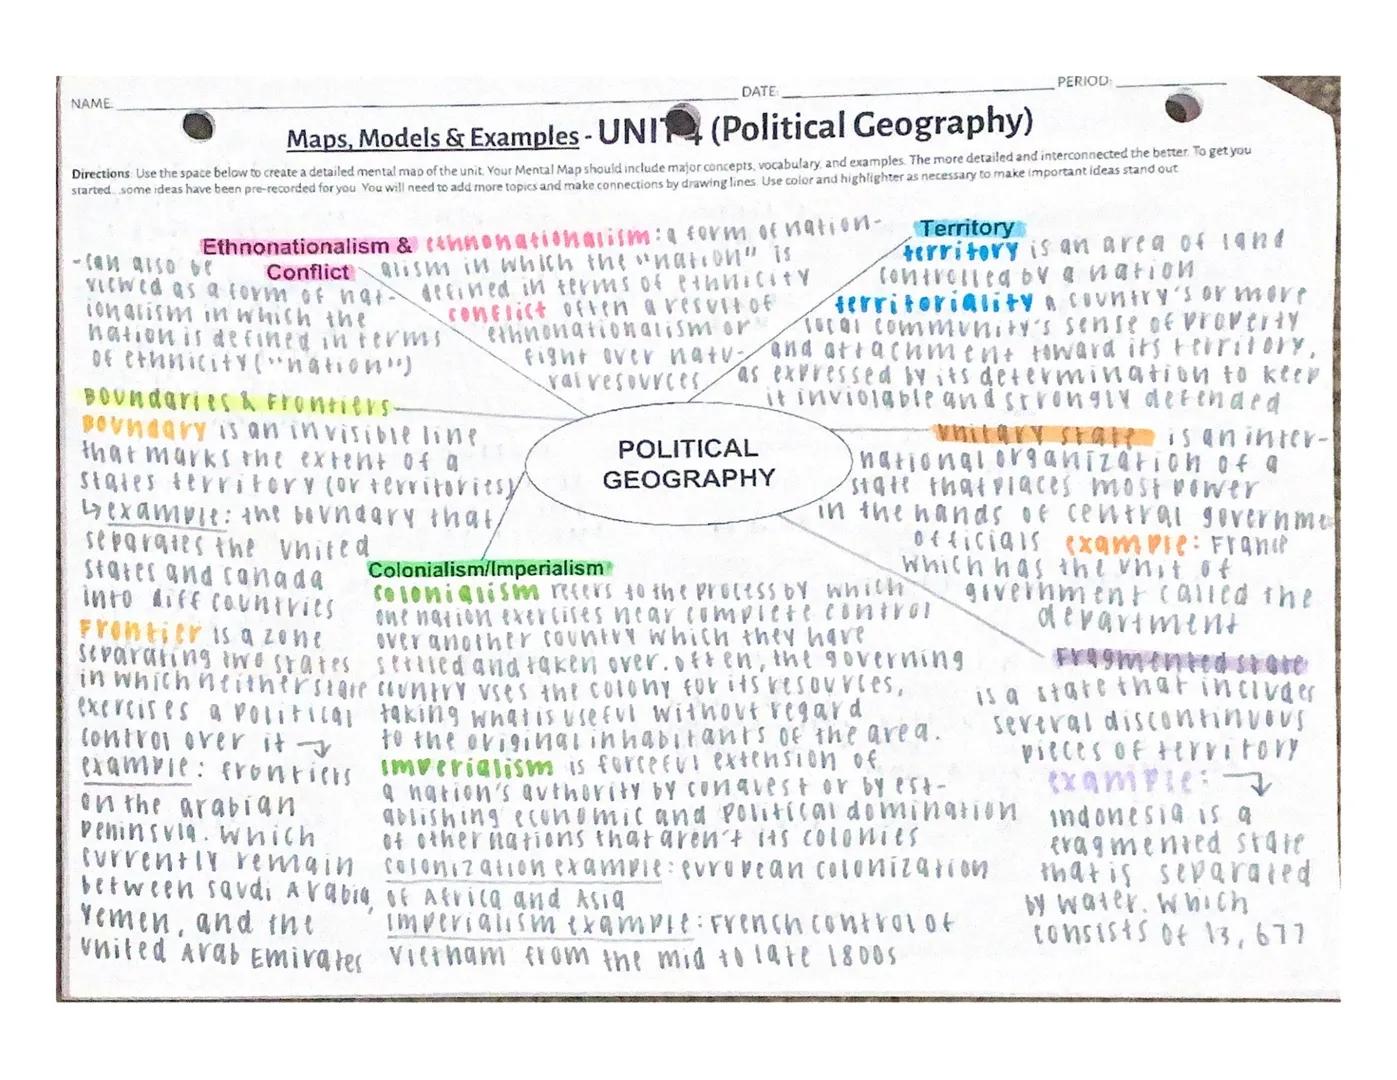 NAME:
DATE:
PERIOD:
Maps, Models & Examples - UNIT 4 (Political Geography)
Directions: Use the space below to create a detailed mental map of the unit. Your Mental Map should include major concepts, vocabulary, and examples. The more detailed and interconnected the better. To get you
started...some ideas have been pre-recorded for you. You will need to add more topics and make connections by drawing lines. Use color and highlighter as necessary to make important ideas stand out.
Ethnonationalism &
Conflict
ethnonationalism: a form of nation-
alism in which the "nation" is
defined in terms of ethnicity
conflict often a result of
ethnonationalism or
fight over natu-
ral resources
-can also be
viewed as a form of nat-
ionalism in which the
nation is defined in terms
of ethnicity ("nation")
Territory
territory is an area of land
controlled by a nation
territoriality a country's or more
local community's sense of property
and attachment toward its territory,
as expressed by its determination to keep
it inviolable and strongly defended
Boundaries & Frontiers
Boundary is an invisible line
that marks the extent of a
states territory (or territories)
↳ example: the boundary that
separates the United
States and Canada
into diff countries
Frontier is a zone
separating two states
in which neither state
exercises a political
control over it →
example: frontiers
on the arabian
Peninsula. Which
currently remain
between Saudi Arabia,
Yemen, and the
United Arab Emirates
POLITICAL
GEOGRAPHY
Colonialism/Imperialism
Colonialism refers to the process by which
one nation exercises near complete control
over another country which they have
settled and taken over. often, the governing
country uses the colony for its resources,
taking what is useful without regard
to the original inhabitants of the area.
Imperialism is forceful extension of
a nation's authority by conquest or by est-
ablishing economic and political domination
of other nations that aren't its colonies
colonization example: european colonization
of Africa and Asia
Imperialism example: French control of
Vietnam from the mid to late 1800s
Unitary state is an inter-
national organization of a
state that places most power
in the hands of central governme
officials example: France
which has the unit of
government called the
department
Fragmented state
is a state that includes
several discontinuous
pieces of territory
example: →
Indonesia is a
fragmented state
that is separated
by water. Which
consists of 13,677